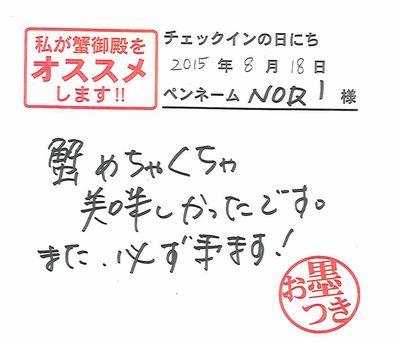 私が蟹御殿を
オススメ
します!!
チェックインの日にち
2015年8月18日
ペンネーム NORI 様
蟹めちゃくちゃ
美味しかったです。
また、必ず来ます!
お墨
つき